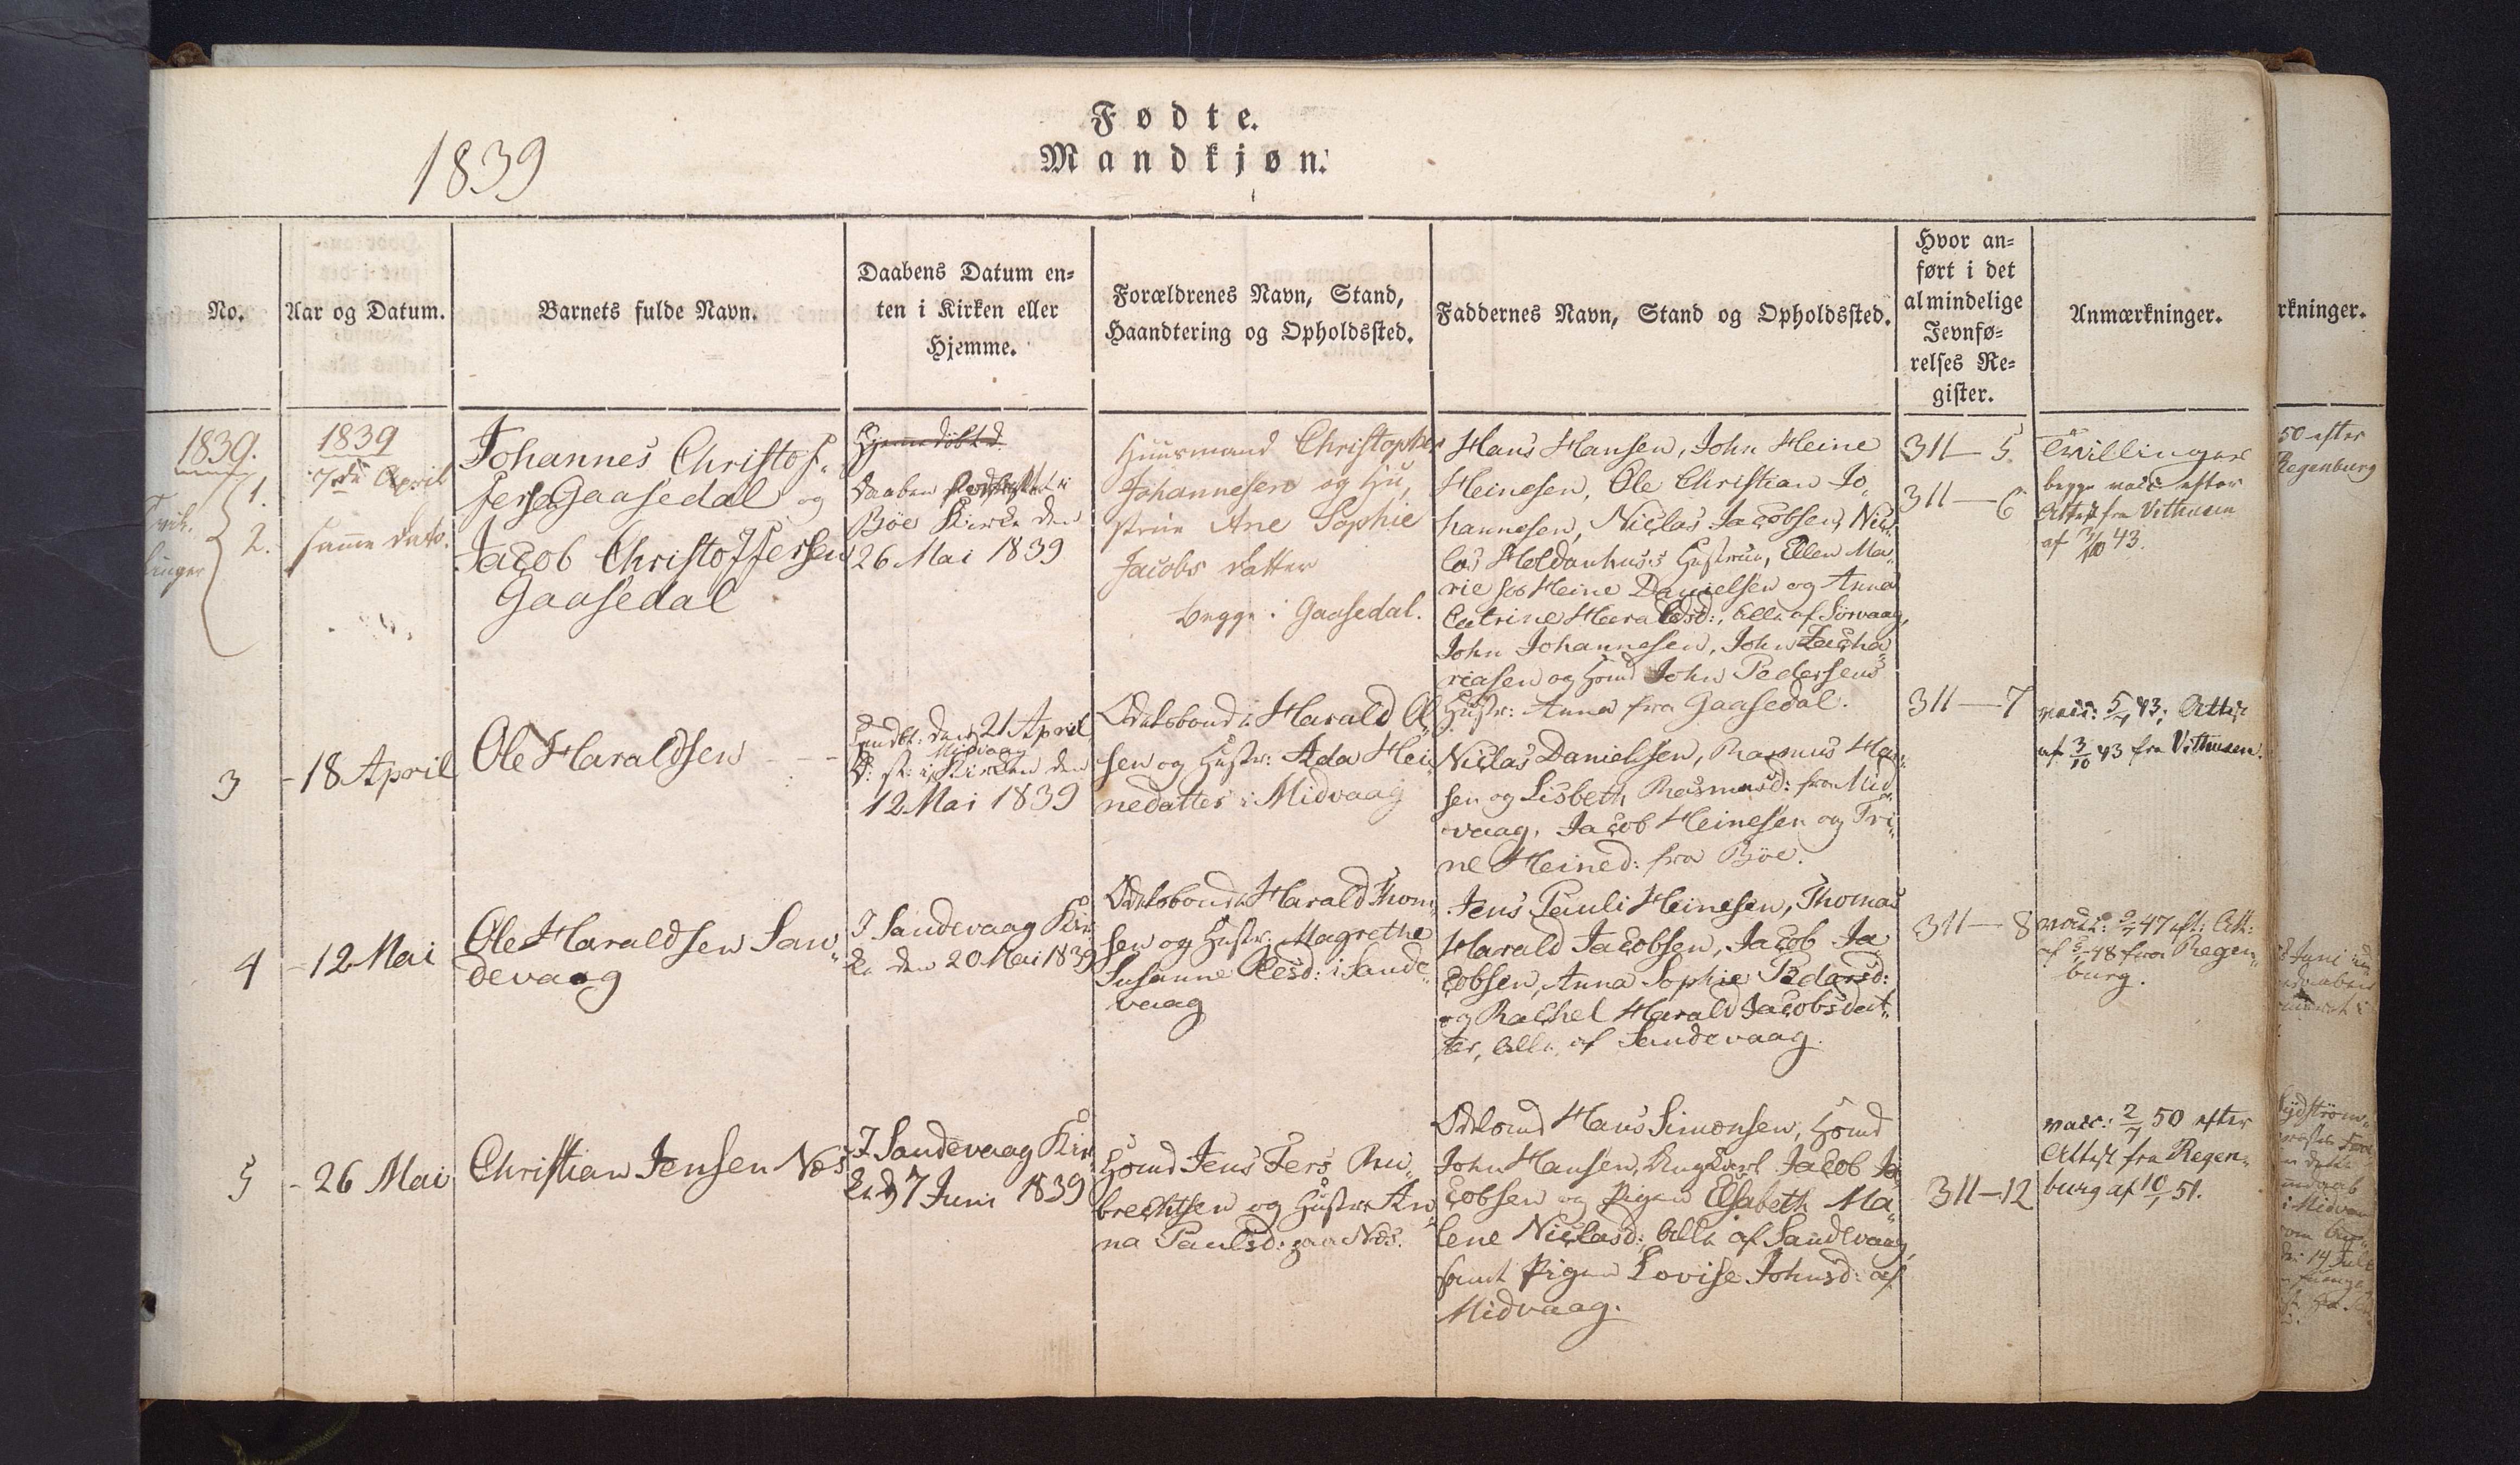 1839
Fødte.
Mandkjøn.
No.
Aar og Datum.
Barnets fulde Navn.
Daabens Datum en=
ten i Kirken eller
Hjemme.
Forældrenes Navn, Stand,
Haandtering og Opholdssted.
Faddernes Navn, Stand og Opholdssted.
Hvor an=
ført i det
almindelige
Jevnfø=
relses Re=
gister.
Anmærkninger.
rkninger.
1839.
1.
2.
1839
7de April
samme Dato.
Johannes Christof„
fersen Gaasedal og
Jacob Christoffersen
Gaasedal
Hjemmedøbt d
Daaben
Böe Kirke den
26 Mai 1839
Huusmand Christopher
Johannesen og Hu„
strue Ane Sophie
Jacobs datter
begge i Gaasedal.
Hans Hansen, John Heine
Heinesen, Ole Christian Jo„
hannesen, Niclas Jacobsen, Nic„
las Hustrue, Ellen Ma„
rie Heine Danielsen og Anna
Catrine Haraldsd:, alle af Sörvaag,
John Johannesen, John Zacha„
riasen og Hmd John Pedersens
Hustr: Anna fra Gaasedal.
311—5
311—6
Tvillinger
begge vacc: efter
Attest fra Vithusen
af 3/10 43.
3
- 18 April
Ole Haraldsen
den 21 April
Midvaag
Kirken den
12 Mai 1839
Odelsbonde Harald Ol„
sen og Hustr: Ada Hei„
nedatter i Midvaag
Niclas Danielsen, Rasmus Han„
sen og Lisbeth Rasmusd: fra Mid„
vaag, Jacob Heinesen og Tri„
ne Heined: fra Böe.
311—7
vacc: 5/7 43; Attest
af 3/10 43 fra Vithusen.
4
- 12 Mai
Ole Haraldsen San„
devaag
I Sandevaag Kir„
ke den 20 Mai 1839
Odelsbonde Harald Thom„
sen og Hustr: Magrethe
Susanne Olesd: i Sande„
vaag
Jens Pauli Heinesen, Thomas
Harald Jacobsen, Jacob Ja„
cobsen, Anna Sophie Pedersd:
og Rachel Harald Jacobsdat„
ter, alle af Sandevaag.
311—8
47 eft: Att:
48 fra Regen„
burg.
5
- 26 Mai
Christian Jensen Næs
I Sandevaag Kir„
ke d 7 Juni 1839
Hmd Jens Fers Ru„
brechtsen og Hustrue An„
na Paulsd: paa Næs.
Hans Simonsen, Hmd
John Hansen, Ungkarl Jacob Ja„
cobsen og Pigen Elsabeth Ma„
lene Niclasd:, alle af Sandevaag,
samt Pigen Lovise Johnsd: af
Midvaag.
311—12
vacc: 2/7 50 efter
Attest fra Regen„
burg af 10/1 51.
50 efter
Regenburg
14 Juli